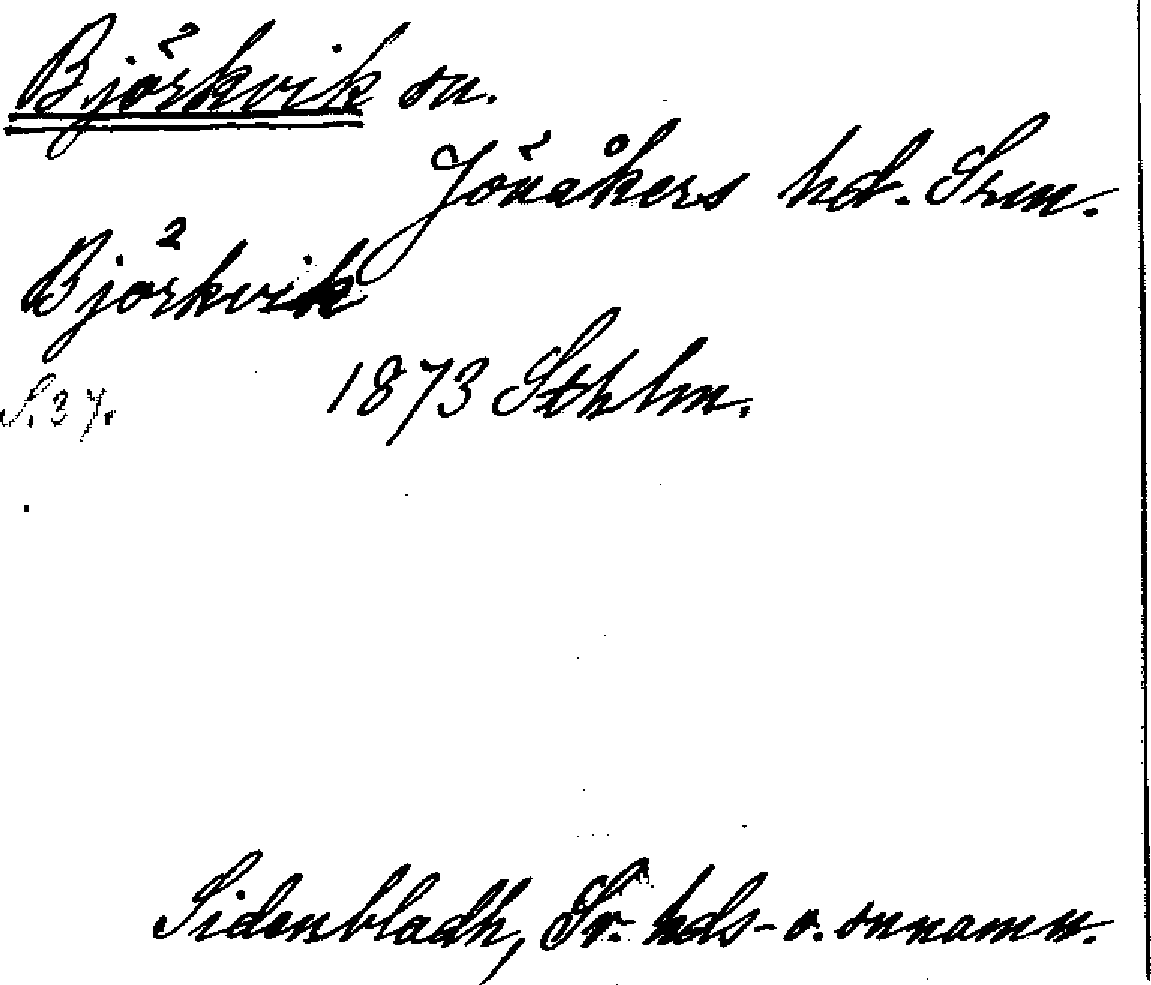 Björkvik sn.
Jönåkers hd. Srm.
Björkvik
S. 37. 1873 Sthlm.
Sidenbladh, Sv. hds- o. snnamn.